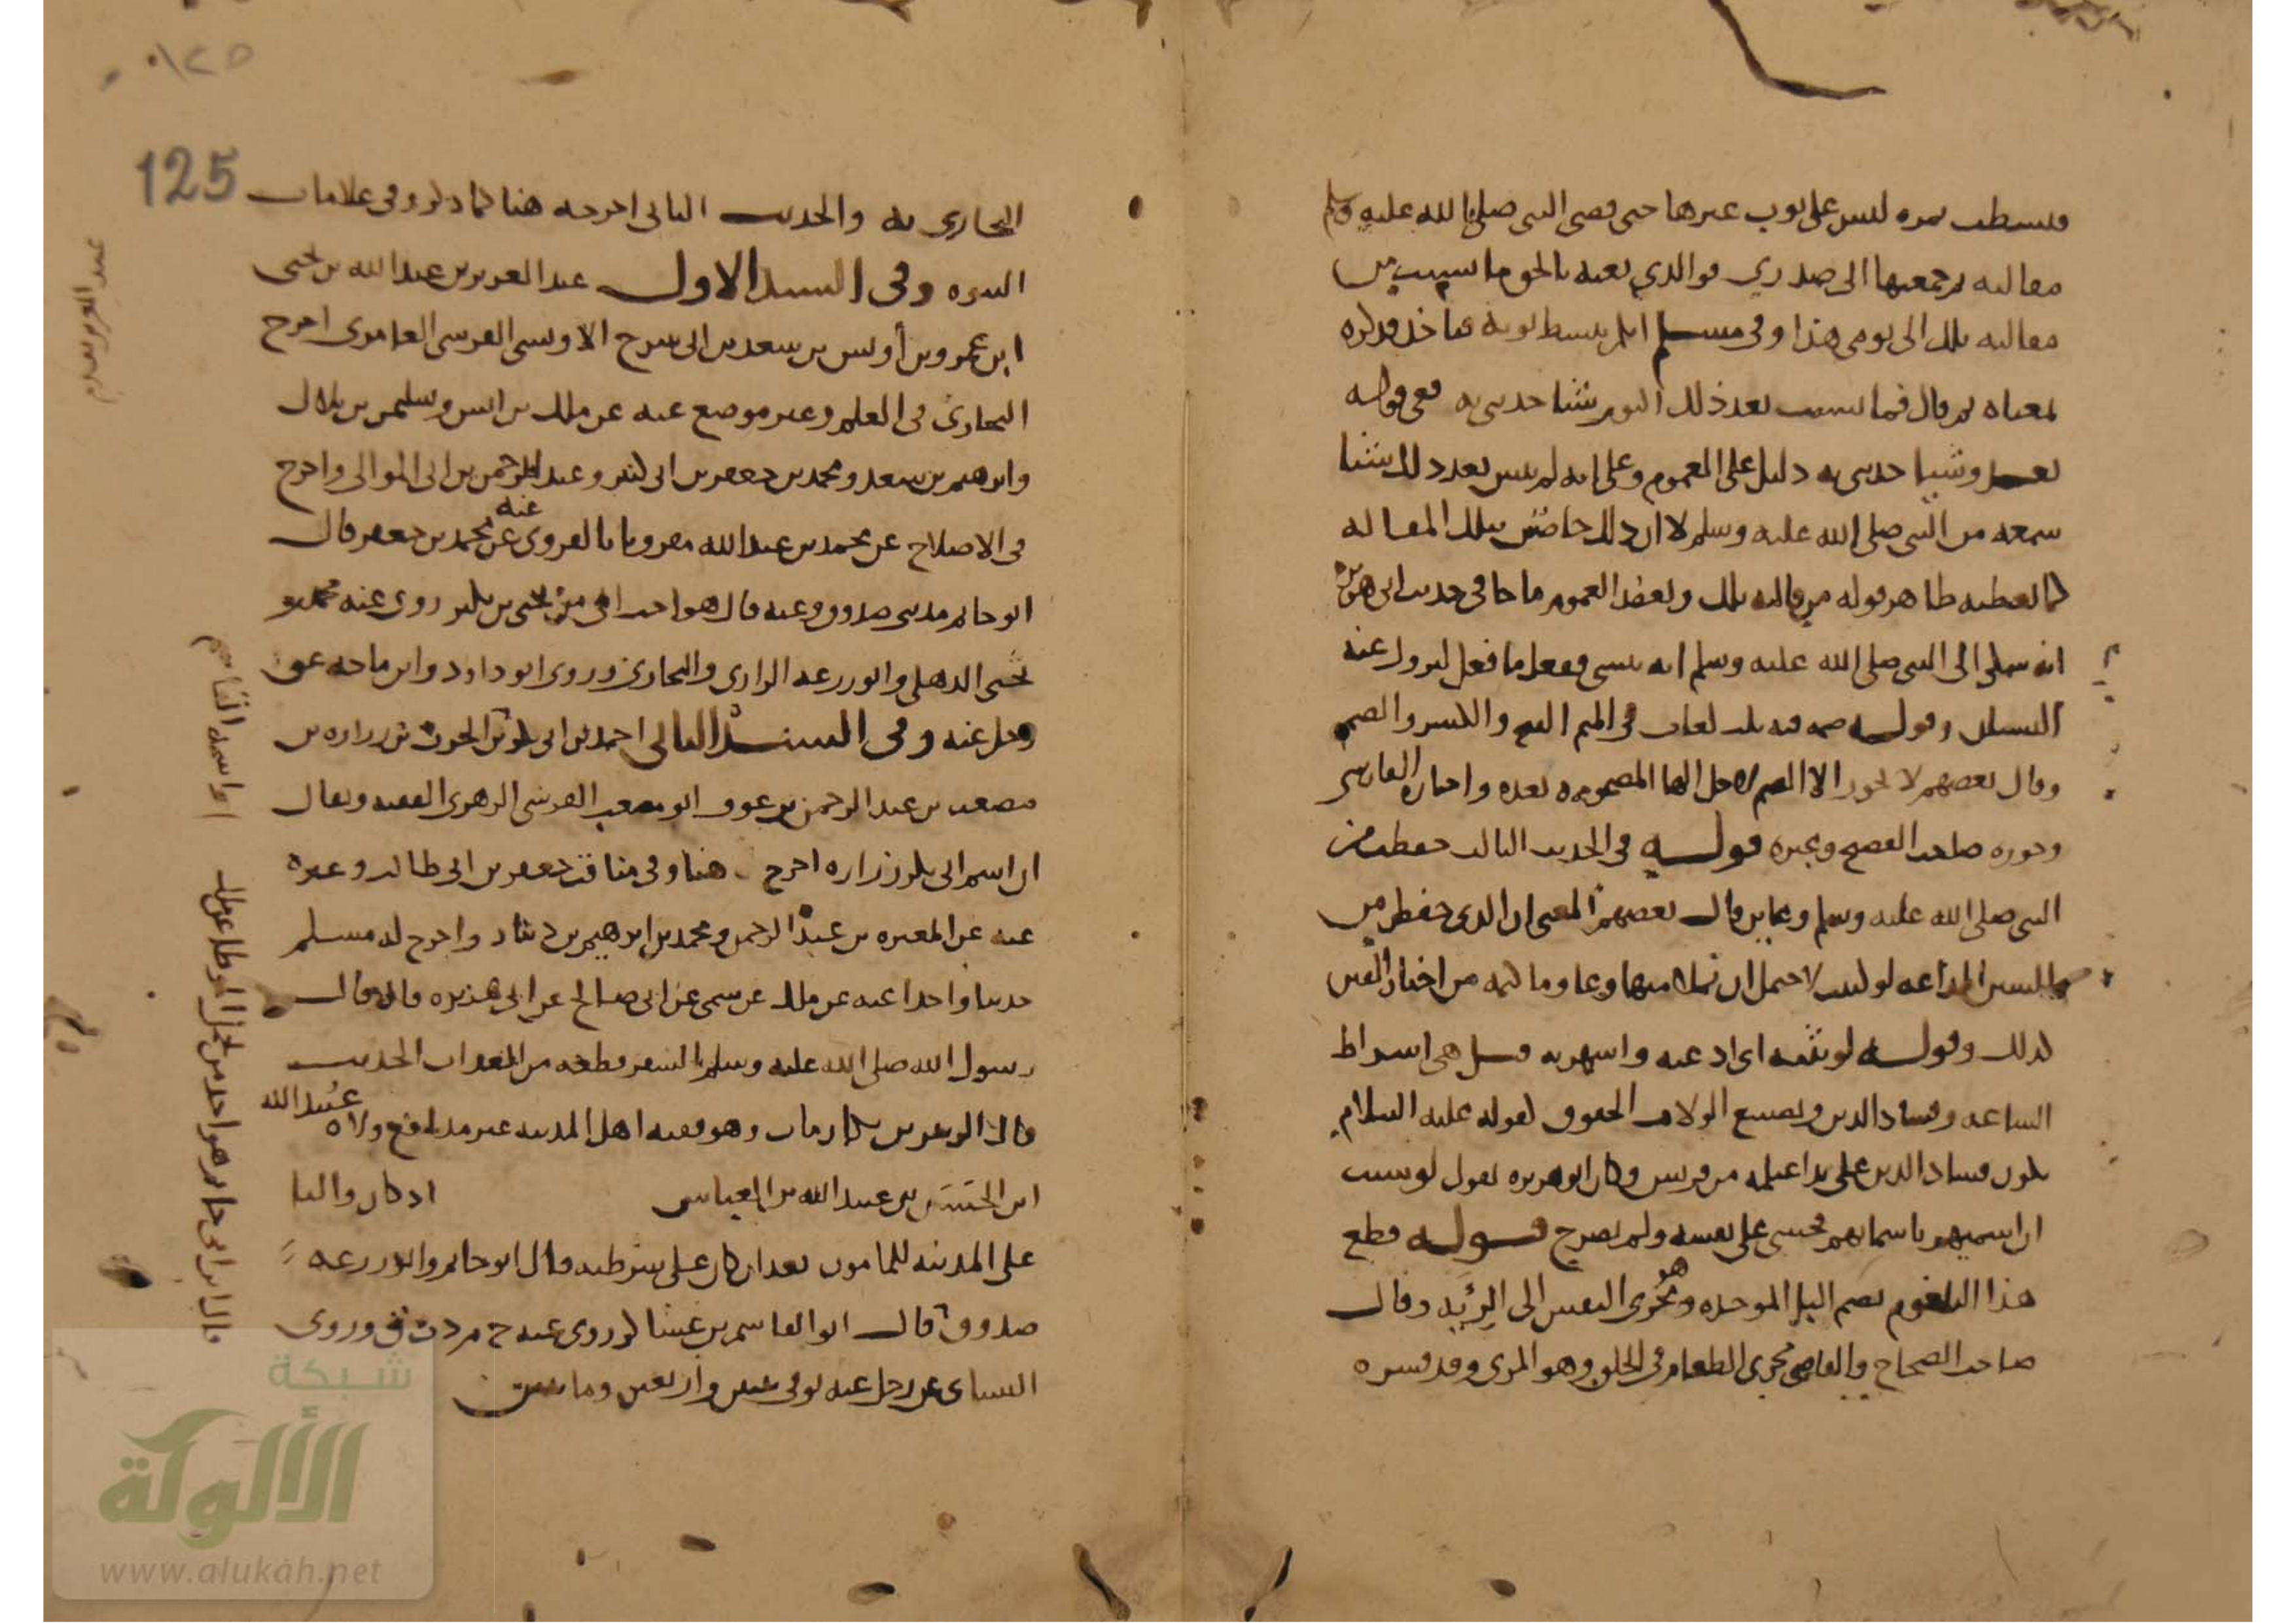 فبسطت نمره ليس على ثوب غيرها حتى قضى النبي صلى الله عليه وسلم
مقالته ثم جمعتها الى صدري فوالذي بعثه بالحق ما نسيت من
مقالته تلك الى يومي هذا وفي مسلم ايكم يبسط ثوبه فياخذ فذكره
بمعناه ثم قال فما نسيت بعد ذلك اليوم شيئا حدثني به ففي قوله
بعد وشيئا حدثني به دليل على العموم وعلى انه لم ينس بعد ذلك شيئا
سمعه من النبي صلى الله عليه وسلم لا ان ذلك خاص بتلك المقالة
كما يعطيه ظاهر قوله من مقالته تلك ويعضد العموم ما جا في حديث ابي هريرة
انه شكى الى النبي صلى الله عليه وسلم انه ينسى ففعل ما فعل ليزول عنه
النسيان وقوله ضمه فيه ثلث لغات في الميم الفتح والكسر والضم
وقال بعضهم لا يجوز الا الضم لاجل الها المضمومة بعده واختاره الفارسي
وجوزه صاحب الفصيح وغيره قوله في الحديث الثالث حفظت من
النبي صلى الله عليه وسلم وعاين قال بعضهم المعنى ان الذي حفظ من
السنن المذاعة لو كتبت لاحتمل ان تملا منها وعا وما كتمه من اخبار الفتن
كذلك وقوله لو بثثته اي اذعته واشهرته قيل هي اشراط
الساعة وفساد الدين وتضييع الولاة الحقوق لقوله عليه السلام
يكون فساد الدين على يد اغيلمة من قريش وكان ابو هريرة يقول لو شيت
ان اسميهم باسمايهم فخشى على نفسه ولم يصرح قوله قطع
هذا البلعوم بضم البا الموحدة وهو مجرى النفس الى الرية وقال
صاحب الصحاح والقاضي مجرى الطعام في الحلق وهو المري وقد فسره
125
البخاري به والحديث الثاني اخرجه هنا كما ذكر وفي علامات
النبوة وفي السند الاول عبد العزيز بن عبد الله بن يحيى
ابن عمرو بن أويس بن سعد بن ابي سرح الاويسي القرشي العامري اخرج
البخاري في العلم وغير موضع عنه عن ملك بن انس وسليمن بن بلال
وابرهيم بن سعد ومحمد بن جعفر بن ابي كثير وعبد الرحمن بن ابي الموالي واخرج
في الاصلاح عن محمد بن عبد الله مقرونا بالفروي عنه عن محمد بن جعفر قال
ابو حاتم مديني صدوق وعنه قال هو احب الي من يحيى بن بكير روى عنه محمد بن
يحيى الذهلي وابو زرعه الرازي والبخاري وروى ابو داود وابن ماجه عن
رجل عنه وفي السند الثاني احمد بن ابي بكر بن الحرث بن زراره بن
مصعب بن عبد الرحمن بن عوف ابو مصعب القرشي الزهري الفقيه ويقال
ان اسم ابي بكر زراره اخرج هنا وفي مناقب جعفر بن ابي طالب وغيره
عنه عن المغيره بن عبد الرحمن ومحمد بن ابرهيم بن دينار واخرج له مسلم
حديثا واحدا عنه عن ملك عن سمي عن ابي صالح عن ابي هريره قال قال
رسول الله صلى الله عليه وسلم السفر قطعه من العذاب الحديث
قال الزبير بن بكار مات وهو فقيه اهل المدينه غير مدافع ولاه عبيد الله
ابن الحسن بن عبيد الله بن العباس اذ كان واليا
على المدينه للمامون بعد ان كان على شرطته قال ابو حاتم وابو زرعه
صدوق قال ابو القاسم بن عساكر روى عنه خ م د ت ق وروى
النسائي عن رجل عنه توفي سنه اثنين واربعين ومايتين
قال ابن ابي حاتم هو احد من تحمل الموطا عن ملك
واسمه القاسم
شبكة
الألوكة
www.alukah.net